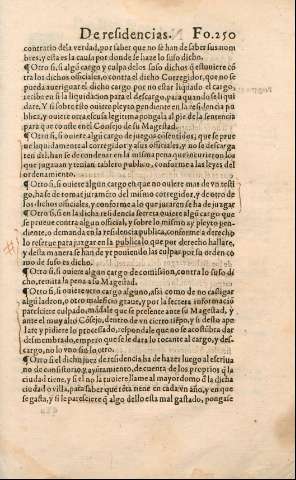 De residencias. Fo.250
contrario dela verdad, por saber que no se han de saber sus nom
bres, y esta es la causa por donde se haze lo suso dicho.
¶ Otro si, si algũ cargo y culpa delos suso dichos q̃ estouiere cõ
tra los dichos officiales, o contra el dicho Corregidor, que no se
pueda aueriguar el dicho cargo por no estar liquidado el cargo,
reciben en si la liquidacion para el descargo, para quando se liqui
dare. Y si sobre esto ouiere pleyto pendiente en la residencia pu
blica, y ouiere otra escusa legitima pongala al pie de la sentencia
para que conste en el Consejo de su Magestad.
¶ Otro si, si ouiere algũ cargo de juegos consentidos, que se prue
ue liquidamente al corregidor y a sus officiales, y no se descarga
ren del, han se de condenar en la misma pena que incurieron los
que jugauan y tenian tablero publico, conforme a las leyes del
ordenamiento.
¶ Otro si, si ouiere algun cargo en que no ouiere mas de vn testi
go, ha se de tomar juramẽto del mismo corregidor, y de otro de
los dichos officiales, y conforme a lo que juraren se ha de juzgar
¶ Otro si, si en la dicha residencia secreta ouiere algũ cargo que
se prueue contra algun official, y sobre lo mismo ay pleyto pen-
diente, o demanda en la residencia publica, conforme a derecho
lo reserue para juzgar en la publica lo que por derecho hallare,
y desta manera se han de yr poniendo las culpas por la orden co
mo de suso es dicho.
¶ Otro si, si ouiere algun cargo de comission, contra lo suso di
cho, remita la pena a su Magestad.
¶ Otro si, si ouiere otro cargo alguno, assi como de no castigar
algũ ladron, o otro maleficio graue, y por la secreta informaciõ
paresciere culpado, mãdale que se presente ante su Magestad, y
ante el muy alto Cõsejo, dentro de vn cierto tiẽpo, y si desto ape
lare y pidiere lo processado, respondale que no se acostũbra dar
desmembrado, empero que se le dara lo tocante al cargo, y des-
cargo, no lo vno sin lo otro.
¶ Otro si el dicho juez de residencia ha de hazer luego al escriua
no de consistorio y ayuntamiento, de cuenta de los proprios q̃ la
ciudad tiene, y si el no la tuuiere llame al mayordomo d̃ la dicha
ciudad o villa, para saber que rẽta tiene en cada vn año, y en que
se gasta, y si le paresciere q̃ algo dello esta mal gastado, pongase